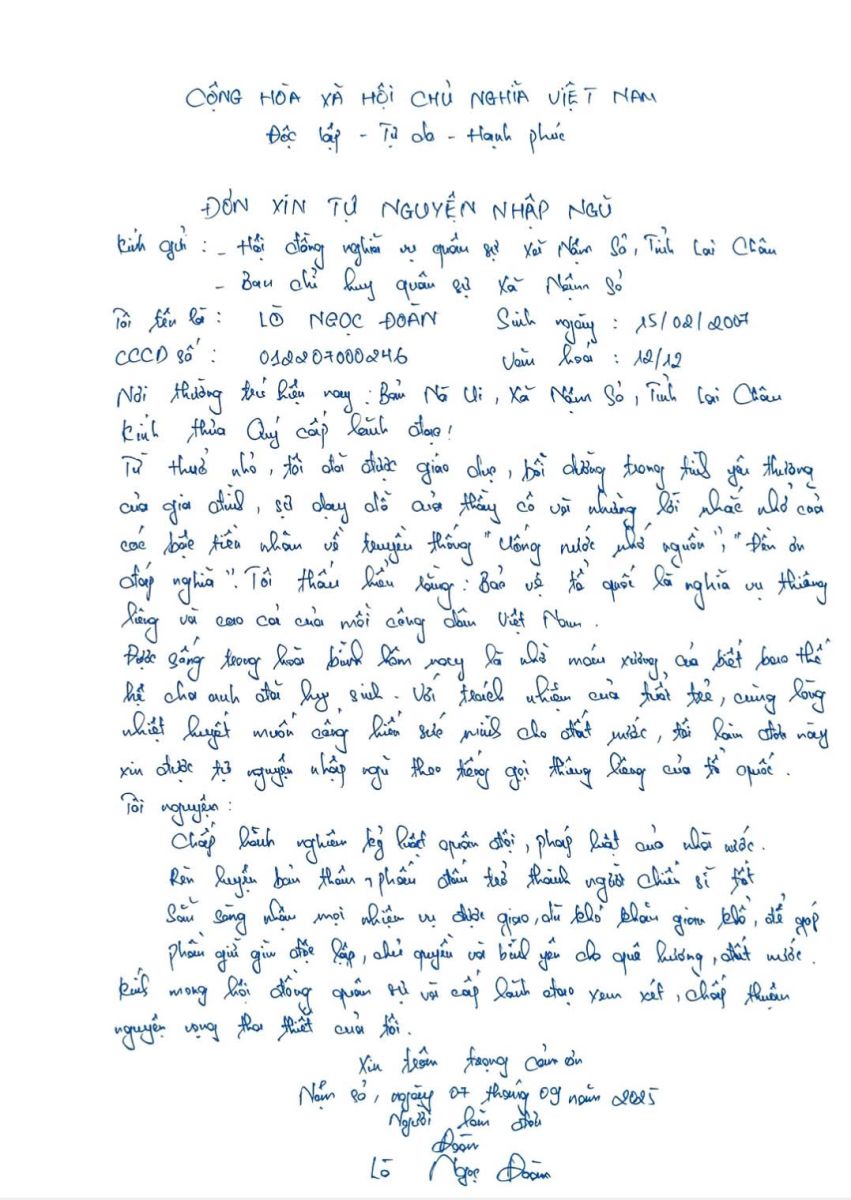 CỘNG HÒA XÃ HỘI CHỦ NGHĨA VIỆT NAM
Độc lập - Tự do - Hạnh phúc
ĐƠN XIN TỰ NGUYỆN NHẬP NGŨ
Kính gửi : - Hội đồng nghĩa vụ quân sự xã Nậm Sỏ, Tỉnh Lai Châu
- Ban chỉ huy quân sự xã Nậm Sỏ
Tôi tên là : LÒ NGỌC ĐOÀN Sinh ngày : 15/02/2007
CCCD số : 012207000246 Văn hoá : 12/12
Nơi thường trú hiện nay : Bản Nà Ui, Xã Nậm Sỏ, Tỉnh Lai Châu
Kính thưa Quý cấp lãnh đạo!
Từ thuở nhỏ, tôi đã được giáo dục, bồi dưỡng trong tình yêu thương
của gia đình, sự dạy dỗ của thầy cô và những lời nhắc nhở của
các bậc tiền nhân về truyền thống "Uống nước nhớ nguồn", "Đền ơn
đáp nghĩa". Tôi thấu hiểu rằng : Bảo vệ tổ quốc là nghĩa vụ thiêng
liêng và cao cả của mỗi công dân Việt Nam.
Được sống trong hoà bình hôm nay là nhờ máu xương của biết bao thế
hệ cha anh đã hy sinh. Với trách nhiệm của tuổi trẻ, cùng lòng
nhiệt huyết muốn cống hiến sức mình cho đất nước, tôi làm đơn này
xin được tự nguyện nhập ngũ theo tiếng gọi thiêng liêng của tổ quốc.
Tôi nguyện :
Chấp hành nghiêm kỷ luật quân đội, pháp luật của nhà nước.
Rèn luyện bản thân, phấn đấu trở thành người chiến sĩ tốt
Sẵn sàng nhận mọi nhiệm vụ được giao, dù khó khăn gian khổ, để góp
phần giữ gìn độc lập, chủ quyền và bình yên cho quê hương, đất nước.
Kính mong hội đồng quân sự và cấp lãnh đạo xem xét, chấp thuận
nguyện vọng tha thiết của tôi.
Xin trân trọng cảm ơn
Nậm sỏ, ngày 07 tháng 09 năm 2025
Người làm đơn
Đoàn
Lò Ngọc Đoàn